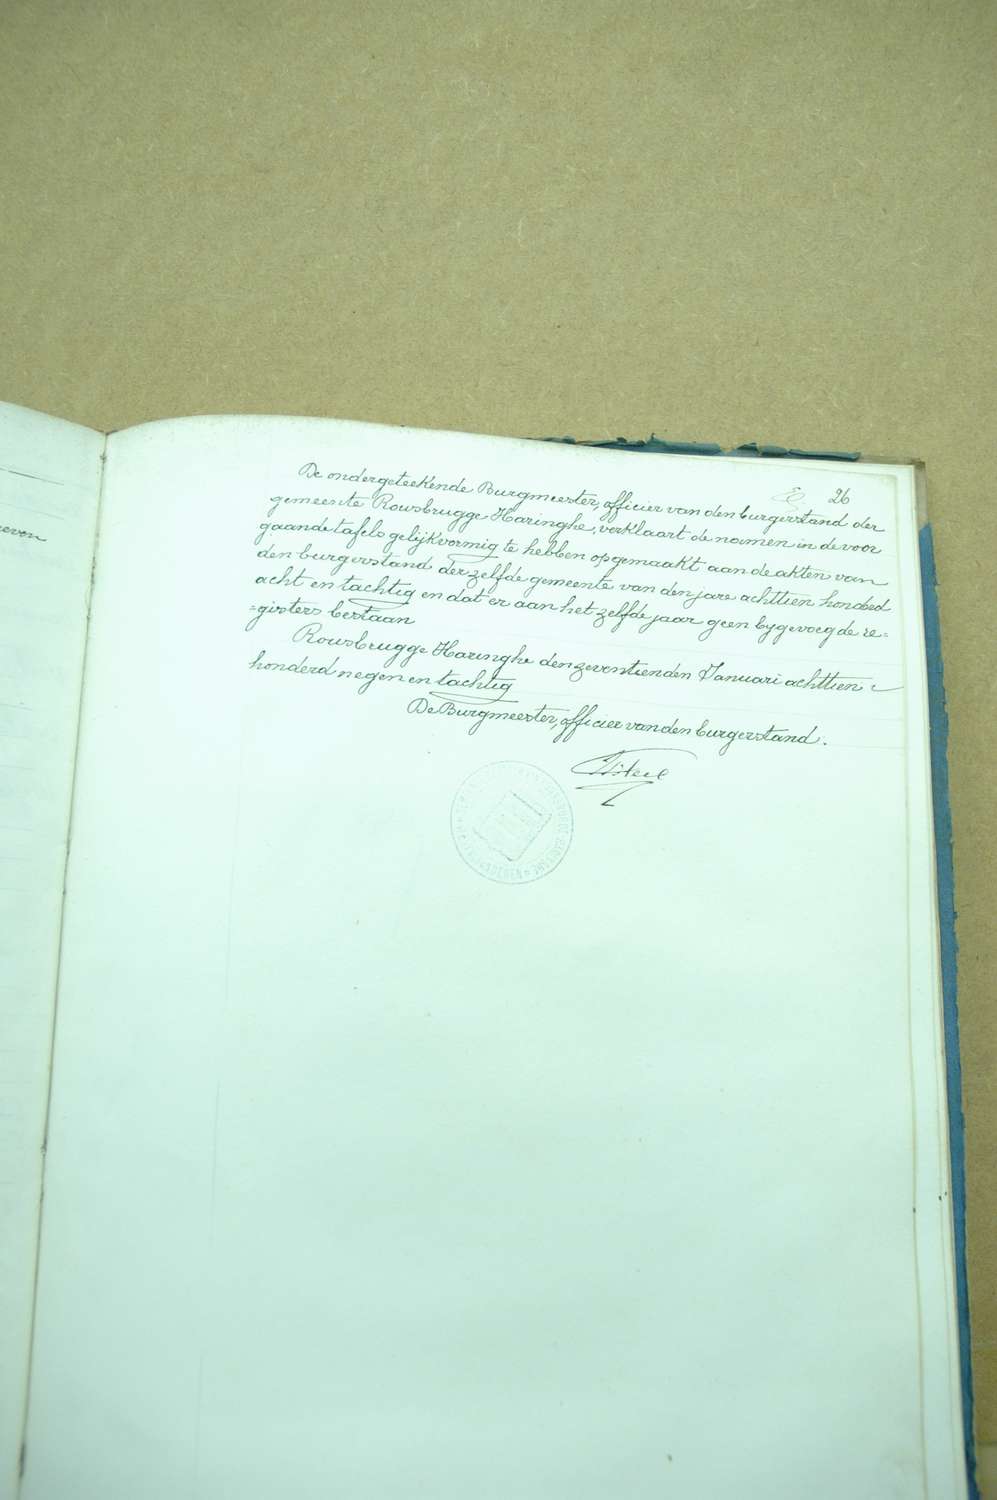 26
De ondergeteekende Burgmeester, officier van den burgerstand der
gemeente Rousbrugge Haringhe, verklaart de namen in de voor
gaande tafels gelijkvormig te hebben opgemaakt aan de akten van
den burgerstand der zelfde gemeente van den jare achttien honderd
acht en tachtig en dat er aan het zelfde jaar geen bygevoegde re=
=gisters bestaan
Rousbrugge Haringhe den zeventienden Januari achttien
honderd negen en tachtig
De Burgmeester, officier van den burgerstand.